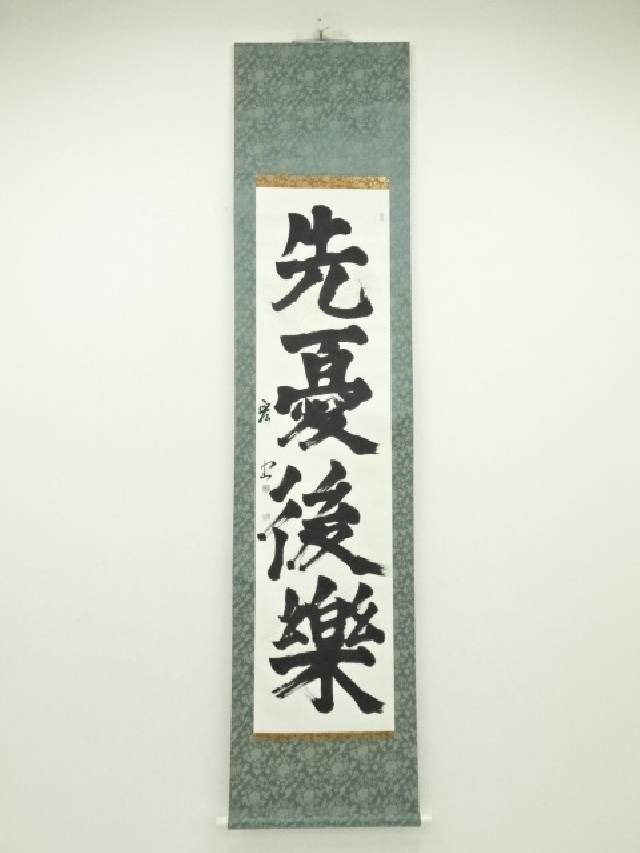 先憂後樂